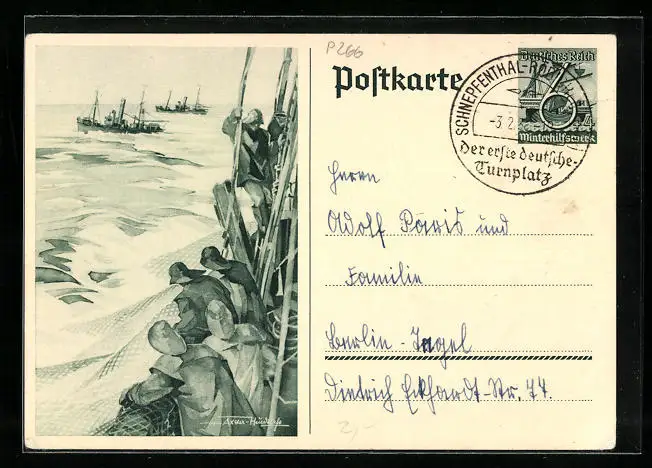 P266
Postkarte
Deutsches Reich
6+4
Winterhilfswerk
SCHNEPFENTHAL-RÖD
-3.2.
Der erste deutsche
Turnplatz
Herrn
Adolf Paris und
Familie
Berlin-Tegel
Dietrich Eckhardt-Str. 74.
2,-
Axster-Heudtlaß